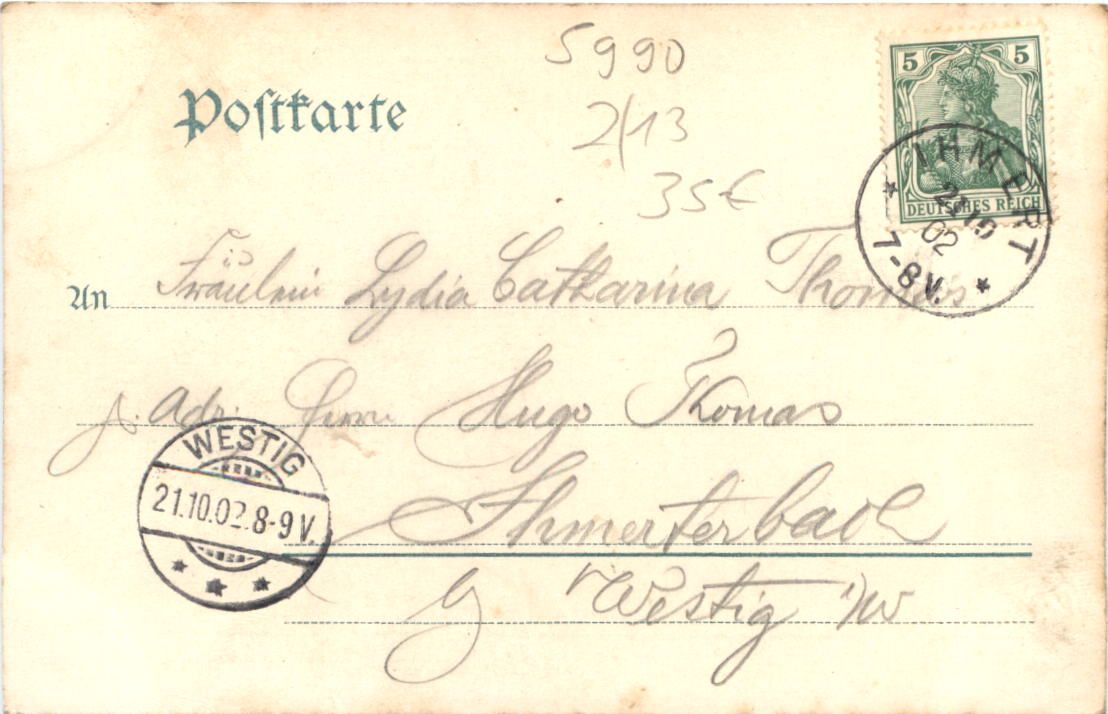 5990
2/13
35€
Postkarte
5 5
DEUTSCHES REICH
IHMERT
21.10
02
7-8 V.
An Fräulein Lydia Catharina Thomas
p. Adr. Herrn Hugo Thomas
Ihmerterbach
WESTIG
21.10.02.8-9 V.
b/ Westig i/W